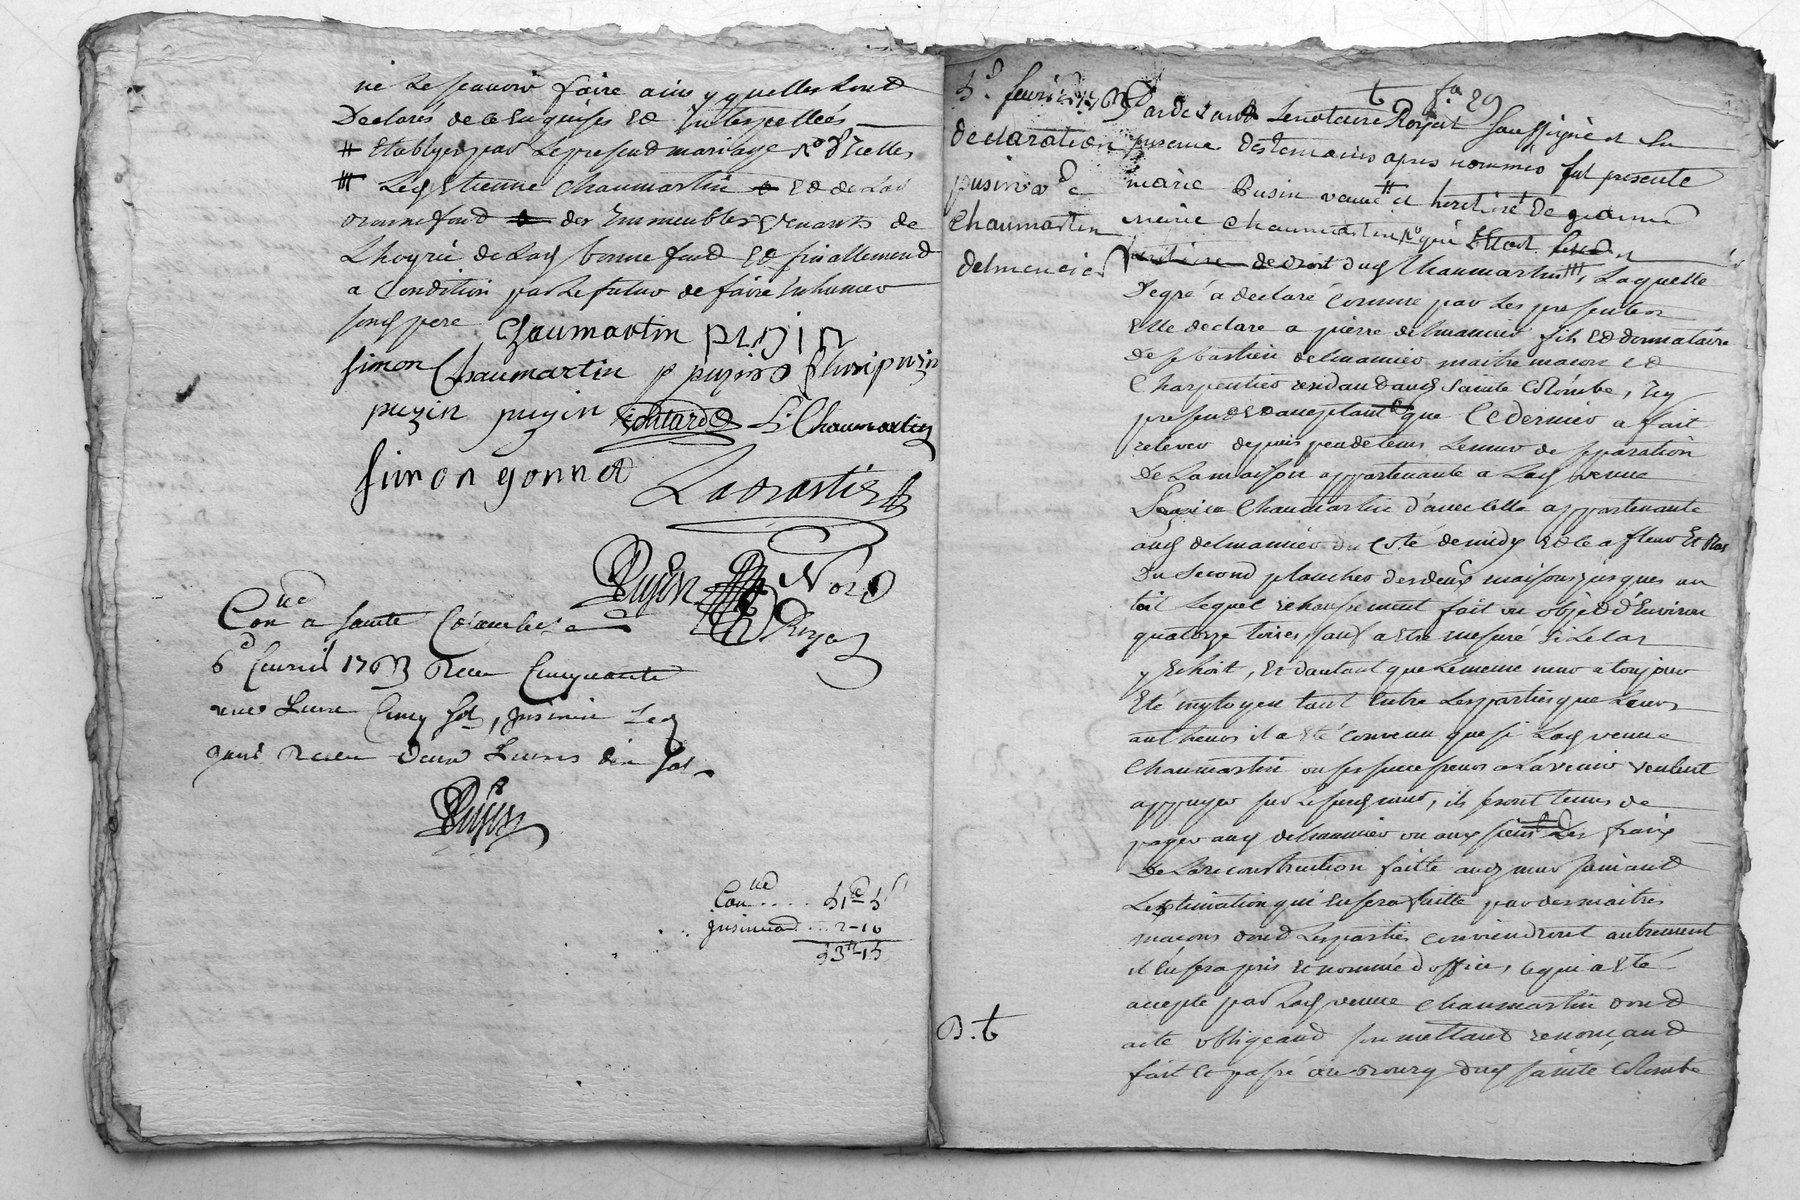 ne le scavoir faire ainsy quelles l'ont
Declarés de ce enquises et Interpellées
# Etablyes par le present mariage
Led Etienne Chaumartin et de lad
bonnefond des Immeubles venants de
L'hoyrie de lad bonnefond et finallement
a condition par le futur de faire inhumer
sond pere Chaumartin puzin
simon Chaumartin p puzin
puzin puzin Coutard L: Chaumartin
simon gonnet
Labrastié
Dujon Nore
Royal
Con lle a sainte Colombe le
6 d fevrier 1763 Receu Cinquante
une Livre Cinq sol, Insinué led
jour Receu Deux Livres dix sol
Dujon
Con lle ..... 51 5
Insinuaõn ... 2-10
53-15
5. d fevrier 1763
declaration
pusin v e
Chaumartin
delmenieu
t f a 29
Pardevant Le notaire Royal soussigné et En
presence des temoins apres nommés fut presente
marie Pusin veuve et heritiere de
Chaumartin
de droit dud Chaumartin, Laquelle
Degré a declaré comme par Les presentes
Elle declare a pierre delmanieu fils et donnataire
de sebastien delmanieu maitre macon et
Charpentier residant aud Sainte Colombe, Icy
present et acceptant que Ce dernier a fait
relever depuis peu de tems Le mur de separation
De La maison appartenante a Lad veuve
Chaumartin d'avec celle appartenante
aud delmanieu du Coté de midy et ce a fleur Et Ras
Du second plancher des deux maisons jusques au
toit Lequel rehaussement fait un objet d'Environ
quatorze toises, sauf a Etre mesuré si Le cas
y Echoit, Et d'autant que Le meme mur a toujours
Eté mytoyen tant Entre Les parties que Leurs
autheurs il a Eté convenu que si Lad veuve
Chaumartin ou ses successeurs a L'avenir veulent
appuyer sur Le susd mur, ils seront tenus de
payer aud delmanieu ou aux siens Les fraix
De La reconstruction faitte aud mur suivant
L'Estimation qui En sera faitte par des maitres
macons dont Les parties conviendront autrement
il En sera pris Et nommé d'office, ce qui a Eté
accepté par Lad veuve Chaumartin dont
acte obligeant soumettant renonçant
fait Et passé au Bourg dud sainte Colombe
B. t